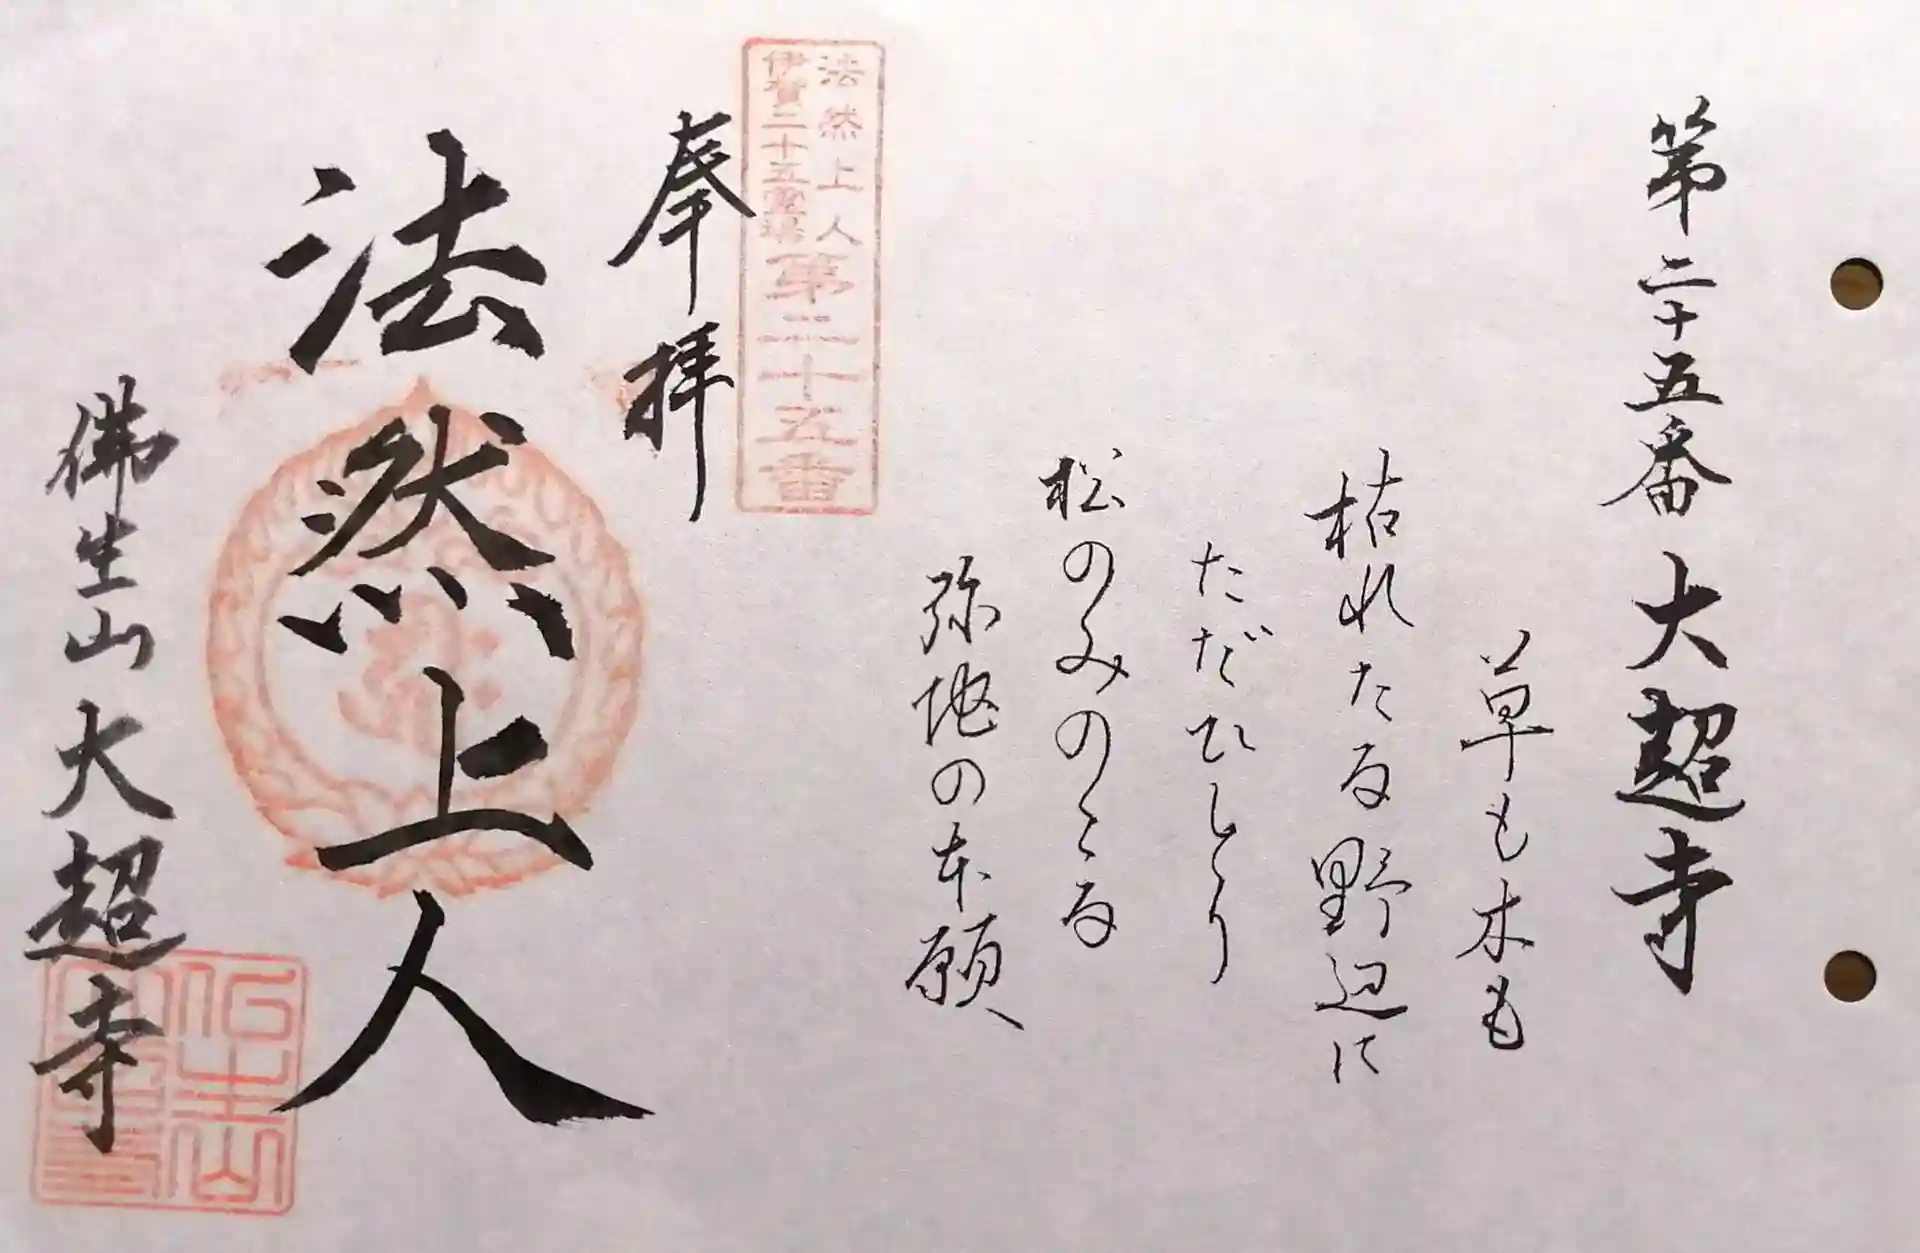 第二十五番 大超寺
草も木も
枯れたる野辺に
たゞひとり
松のみのこる
弥陀の本願
法然上人
伊賀二十五霊場
第二十五番
奉拝
法然上人
佛生山 大超寺